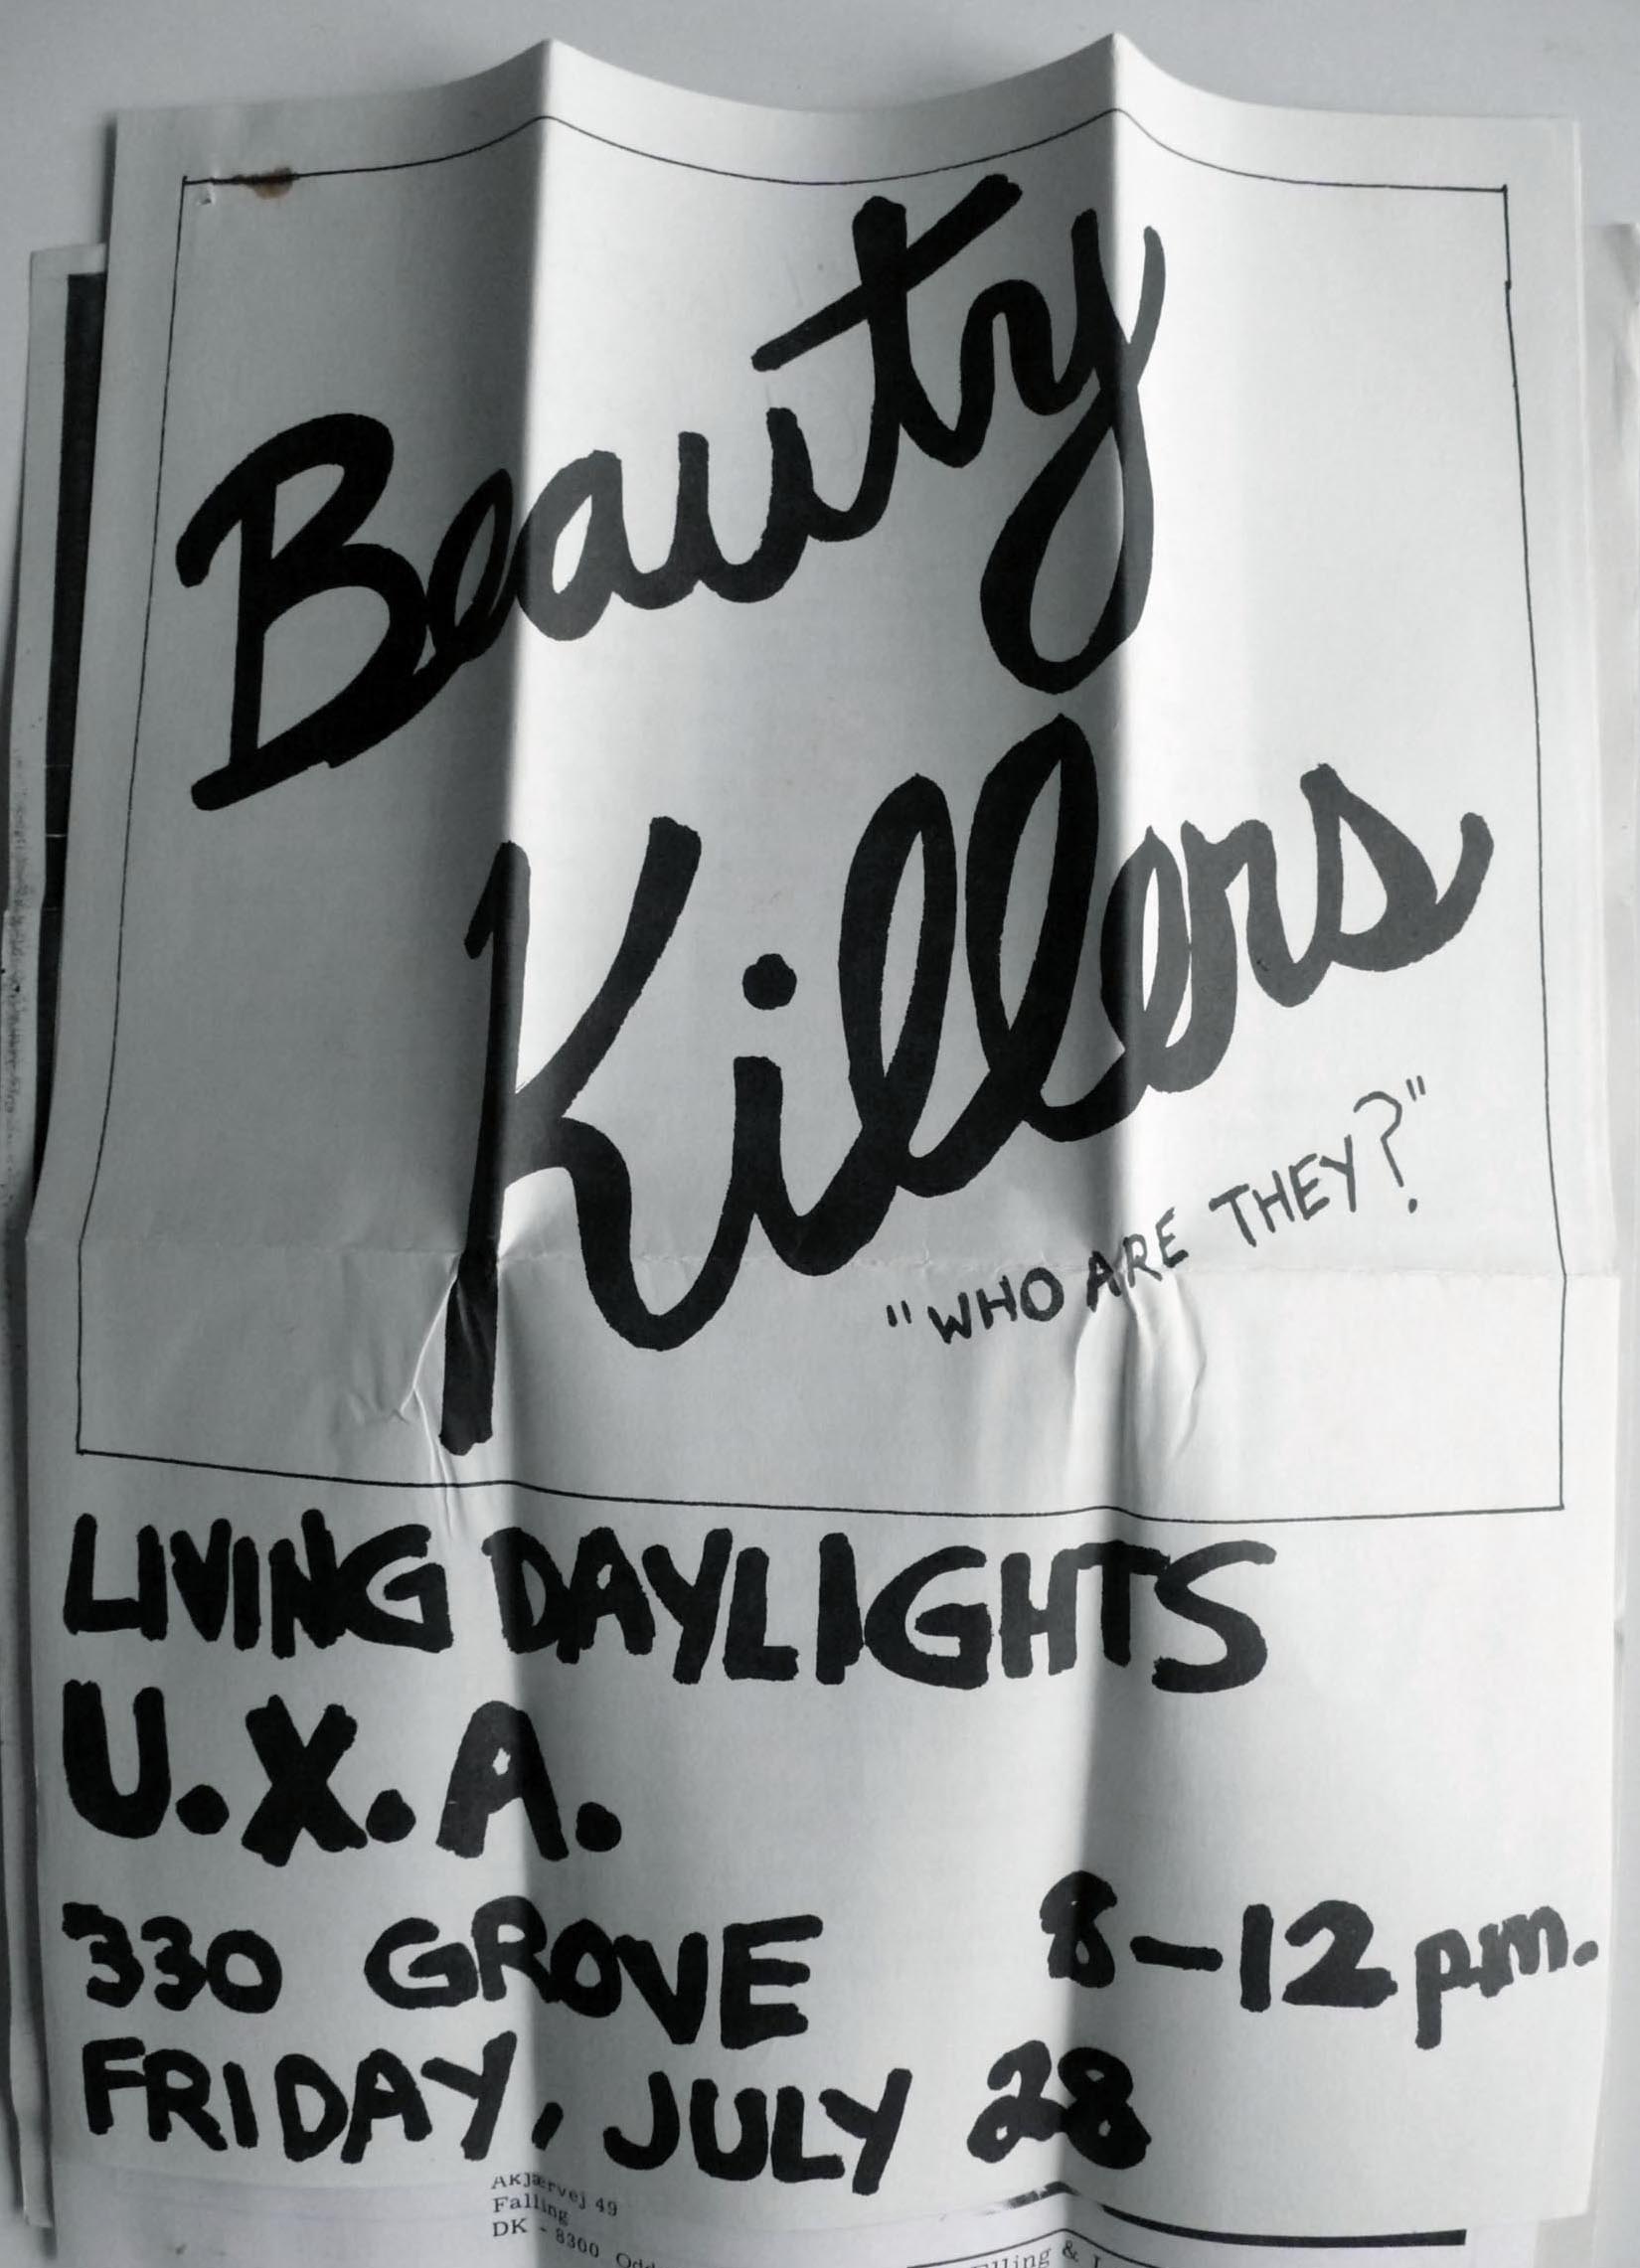 Beauty
Killers
"WHO ARE THEY?"
LIVING DAYLIGHTS
U.X.A.
330 GROVE 8-12 pm.
FRIDAY, JULY 28
Akjærvej 49
Falling
DK - 8300
&